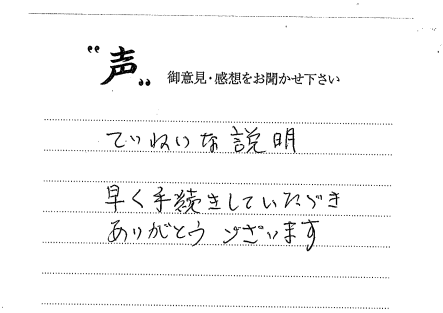 "声" 御意見・感想をお聞かせ下さい
ていねいな説明
早く手続きしていただき
ありがとうございます